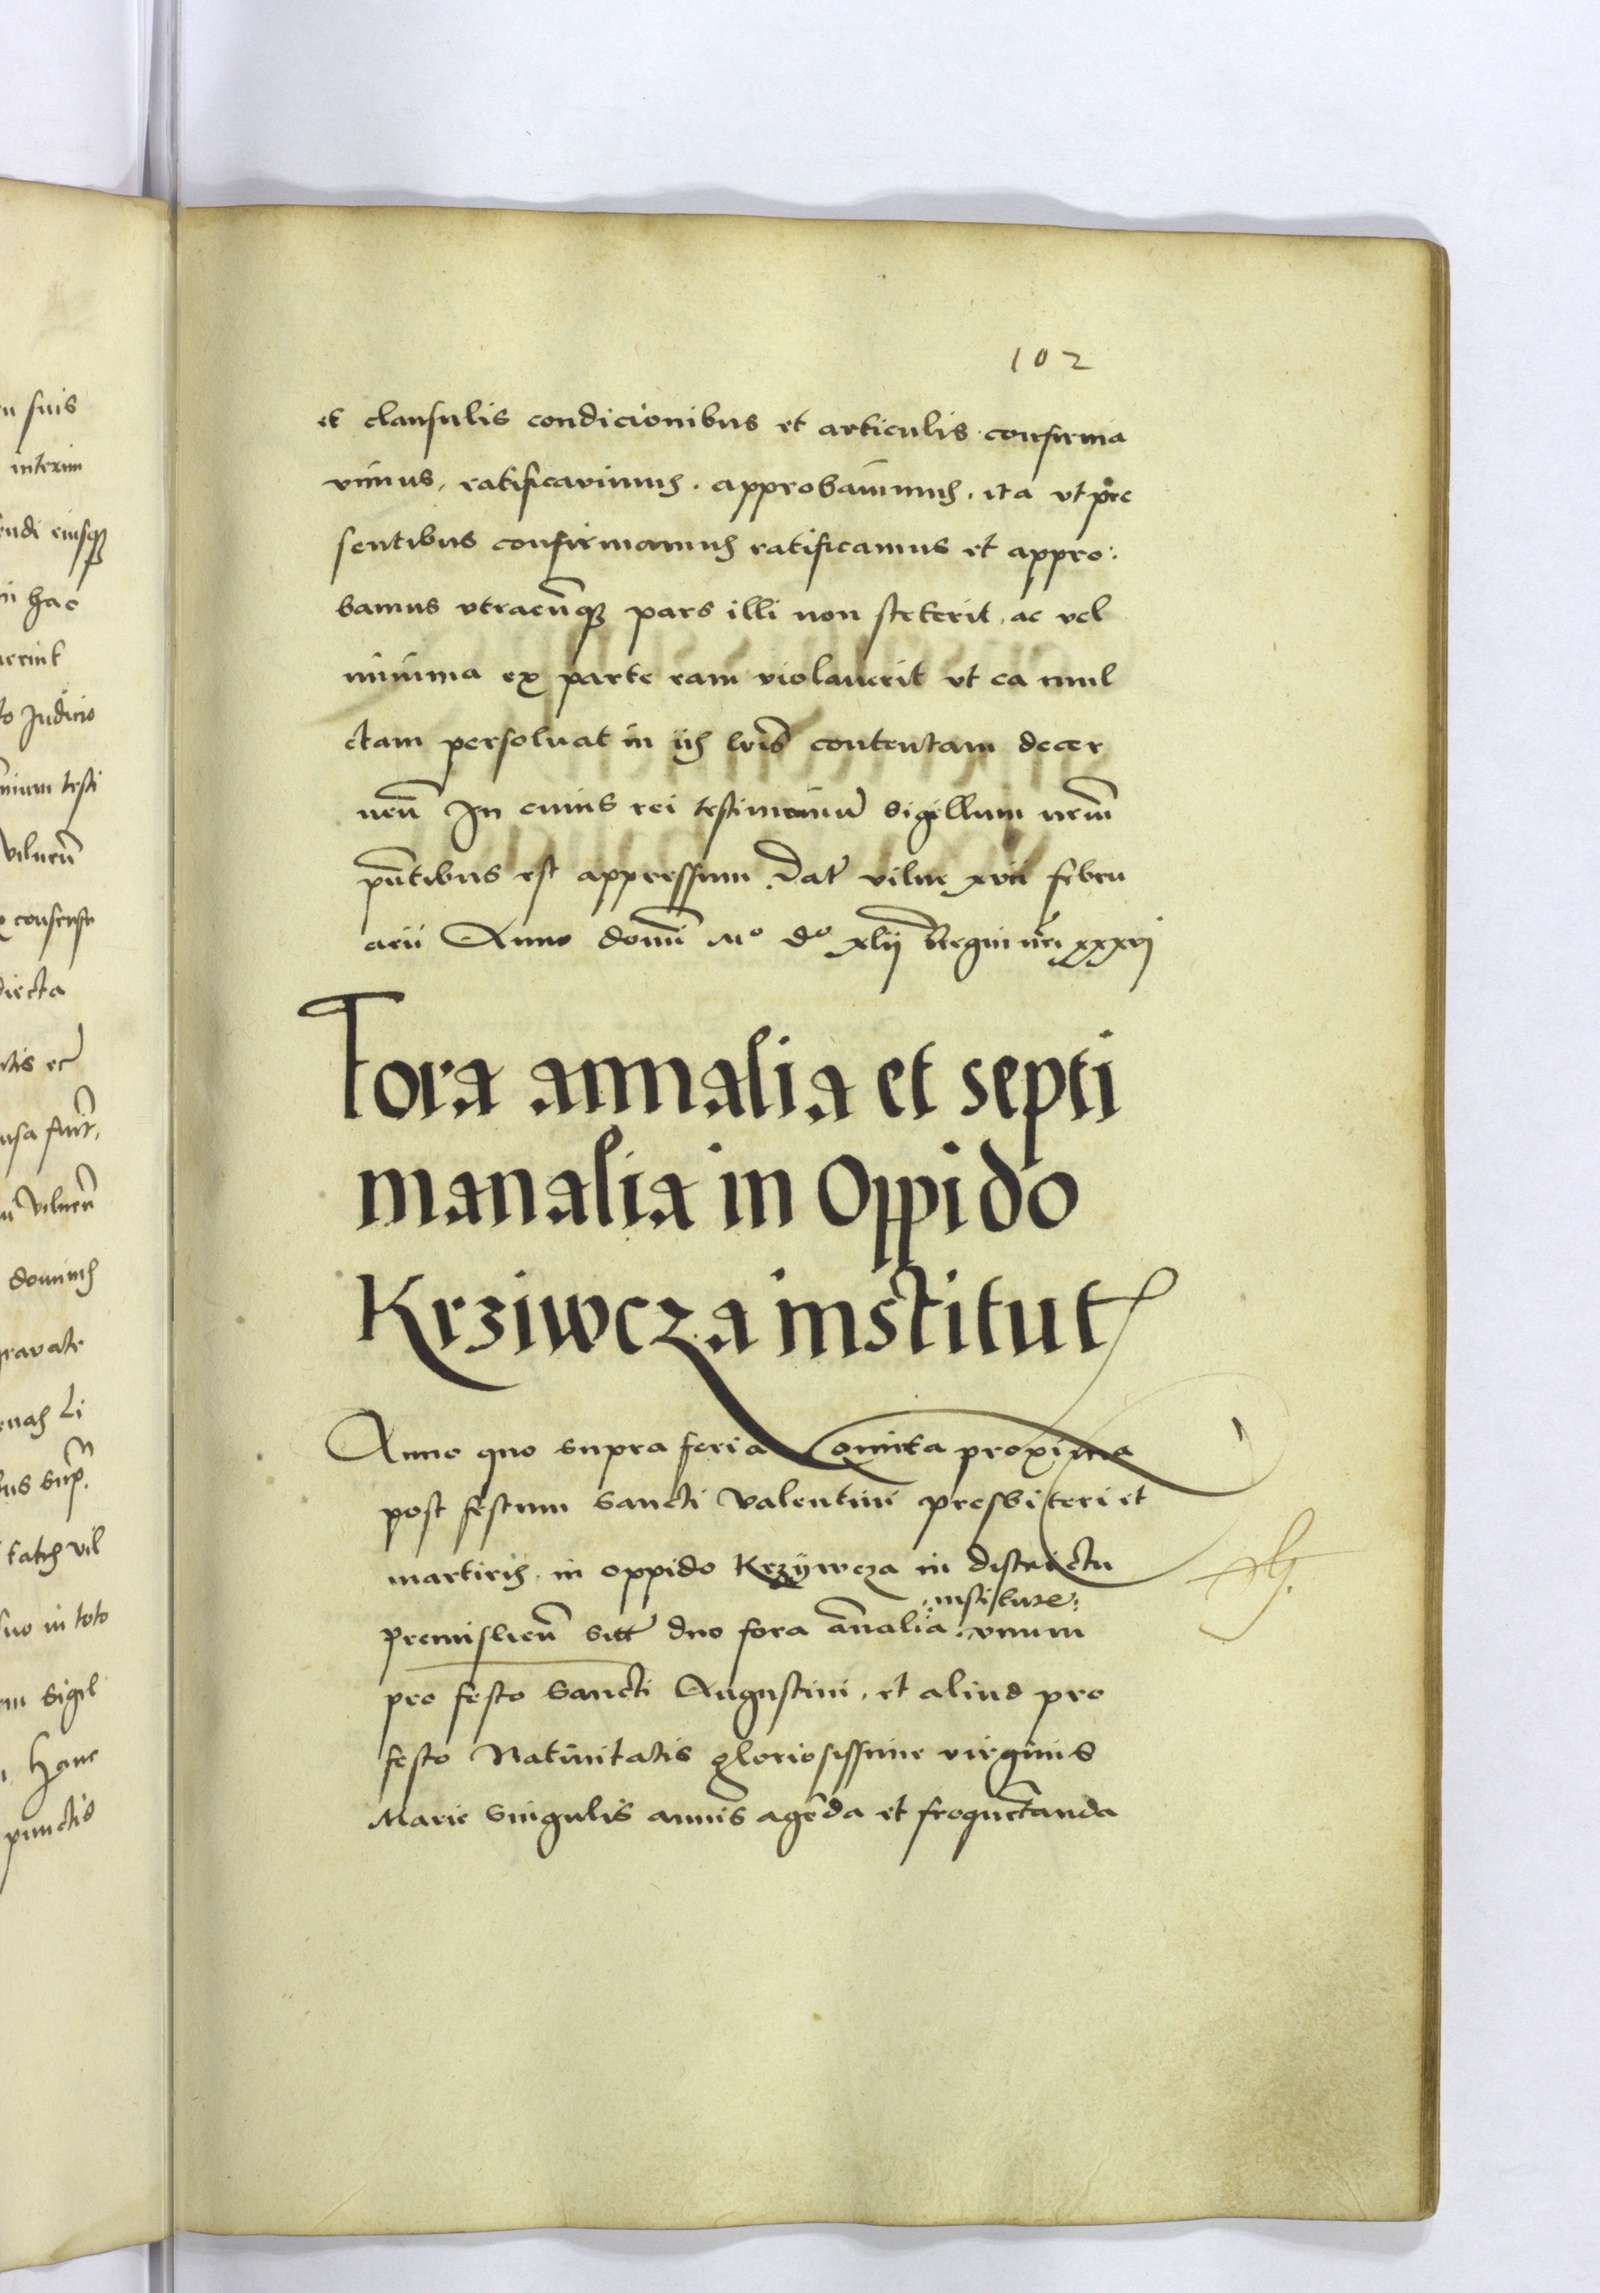 102
et clausulis condicionibus et articulis confirma
vimus, ratificavimus. approbavimus. ita ut pre
sentibus confirmamus ratificamus et appro:
bamus utracunque pars illi non steterit. ac vel
minima ex parte eam violaverit ut ea mul
ctam persolvat in iis lris contentam decer
nen In cuius rei testimonium sigillum nrm
pntibus est appressum. Dat vilne xvii febru
arii Anno domi Mo do xlii Regni nri xxxvi
Fora annalia et septi
manalia in Oppido
Krziwcza institut
Anno quo supra feria quinta proxima
post festum sancti Valentini presbiteri et
martiris. in oppido Krzywcza in districtu
institute:
premislien sitt duo fora annalia. unum
pro festo sancti Augustini. et aliud pro
festo Nativitatis gloriosissime virginis
Marie singulis annis agenda et frequentanda
suis
interim
eiusque
in hac
Judicio
testi
vilnen
consensu
vilnen
vil
suo in toto
sigil
Hanc
punctis